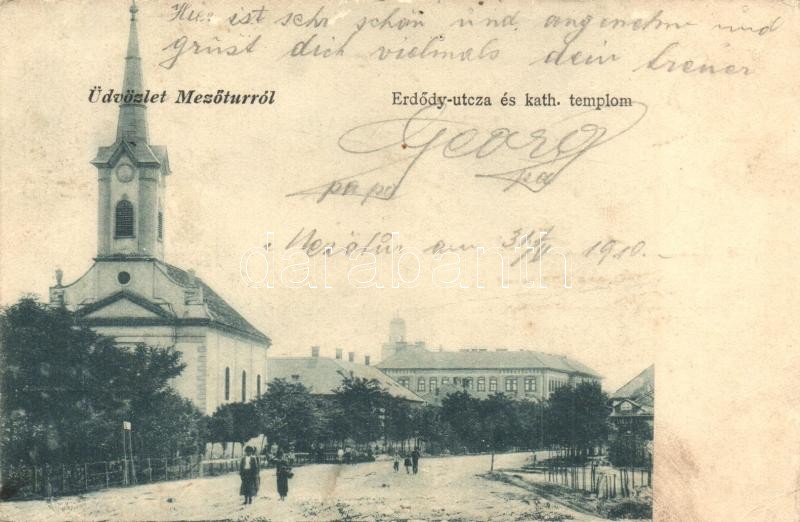 Hier ist sehr schön und angenehm und
grüßt dich vielmals dein treuer
Üdvözlet Mezőturról
Erdődy-utcza és kath. templom
Georg
papa
Mezötúr am 1910.
darabanth